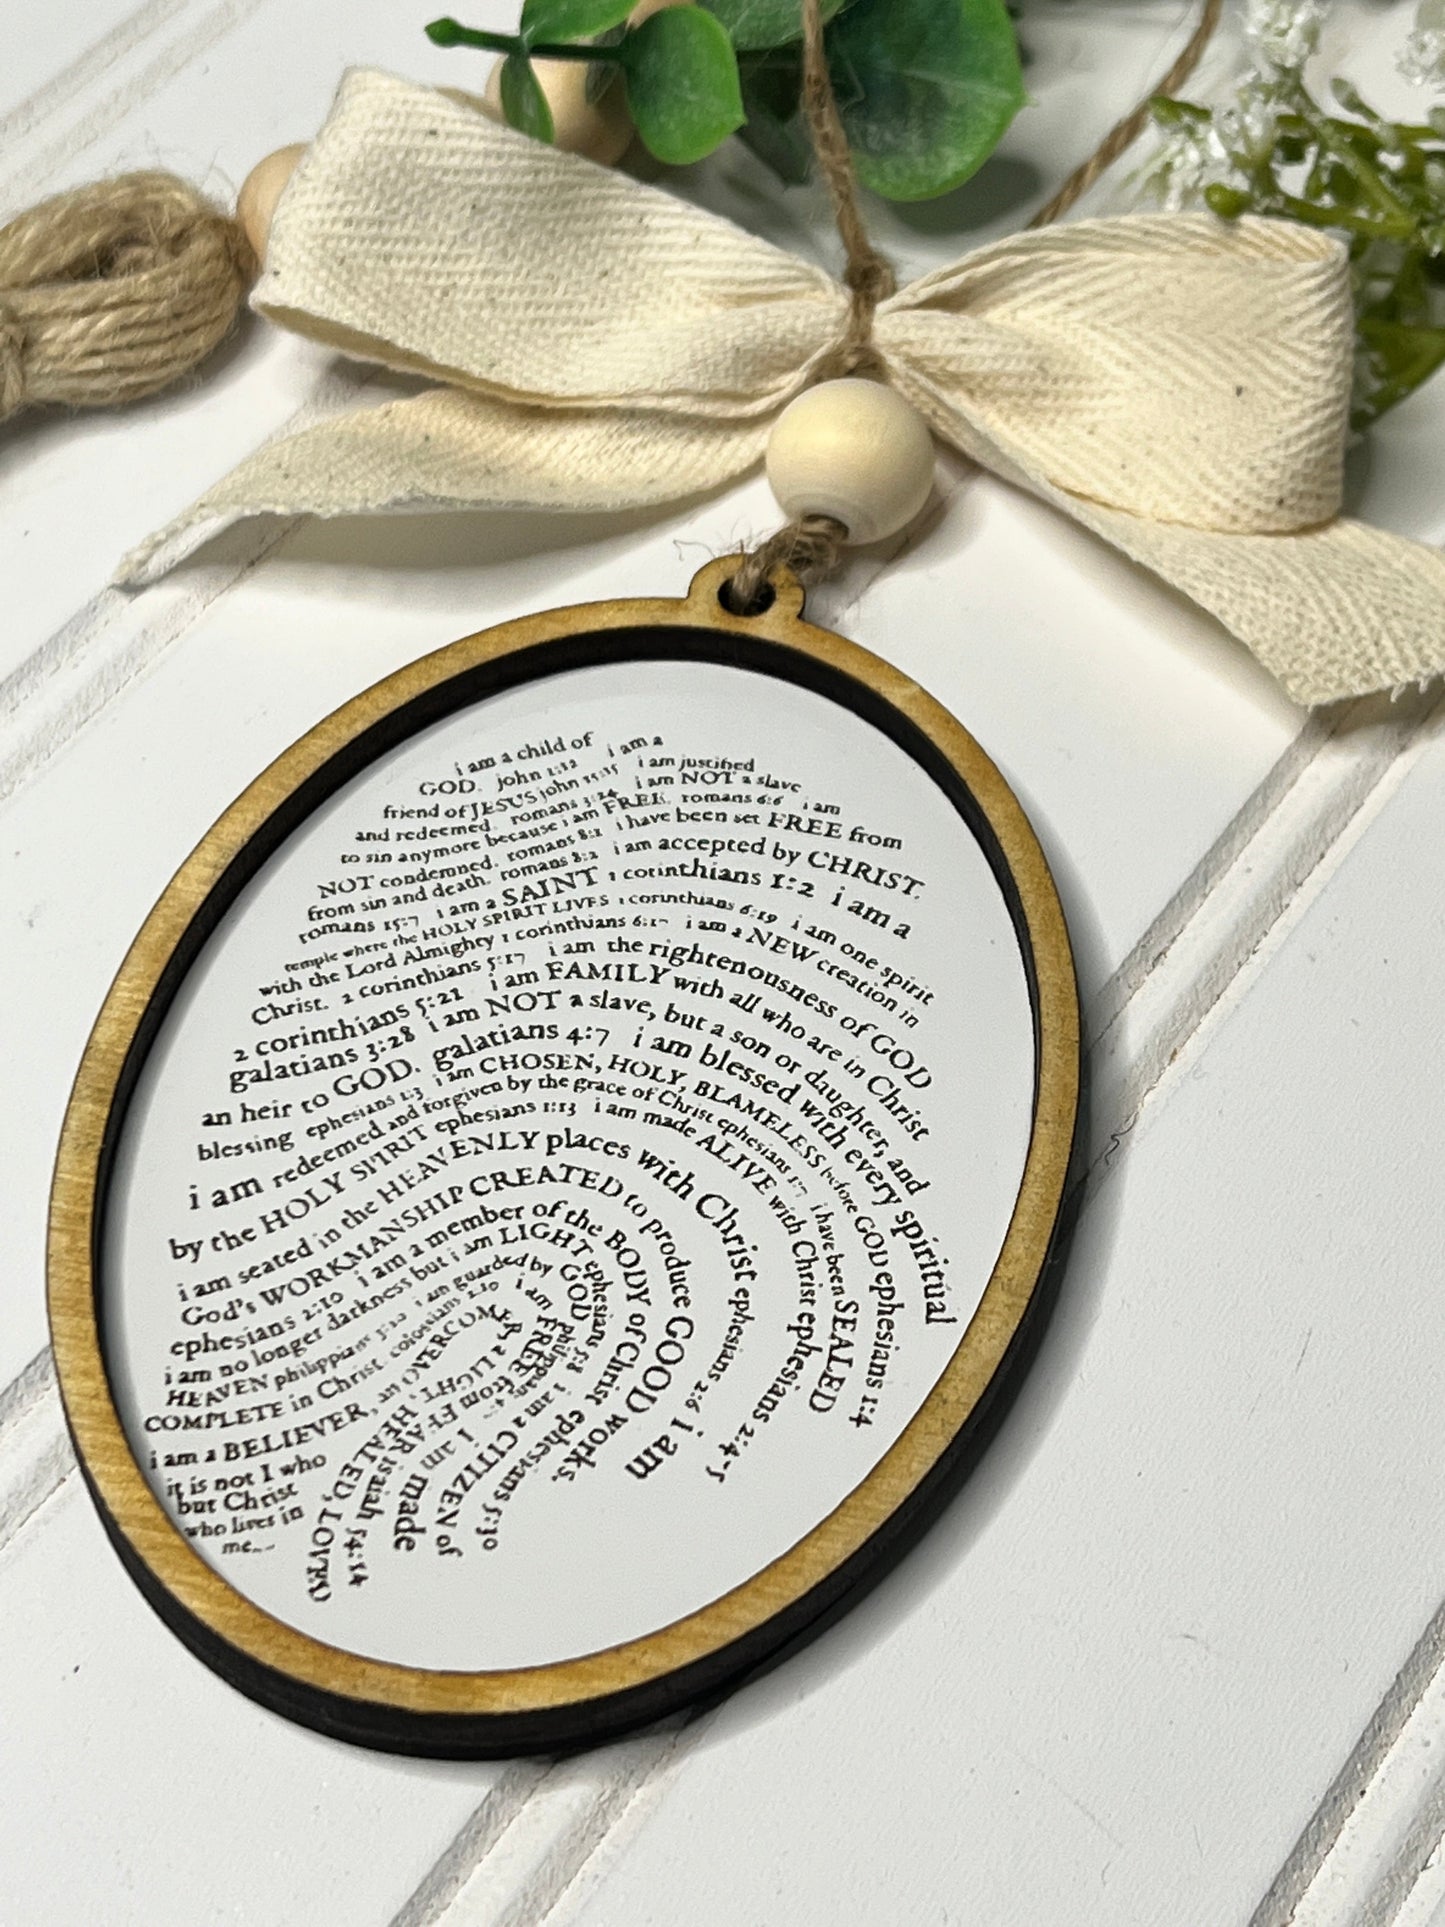 i am a child of
GOD. john 1:12 i am a
friend of JESUS john 15:15 i am justified
and redeemed. romans 3:24 i am NOT a slave
to sin anymore because i am FREE. romans 6:6 i am
NOT condemned. romans 8:1 i have been set FREE from
from sin and death. romans 8:2 i am accepted by CHRIST.
romans 15:7 i am a SAINT 1 corinthians 1:2 i am a
temple where the HOLY SPIRIT LIVES 1 corinthians 6:19 i am one spirit
with the Lord Almighty 1 corinthians 6:17 i am a NEW creation in
Christ. 2 corinthians 5:17 i am the rightenousness of GOD
2 corinthians 5:21 i am FAMILY with all who are in Christ
galatians 3:28 i am NOT a slave, but a son or daughter, and
an heir to GOD. galatians 4:7 i am blessed with every spiritual
blessing ephesians 1:3 i am CHOSEN, HOLY, BLAMELESS before GOD ephesians 1:4
i am redeemed and forgiven by the grace of Christ ephesians 1:7 i have been SEALED
by the HOLY SPIRIT ephesians 1:13 i am made ALIVE with Christ ephesians 2:4-5
i am seated in the HEAVENLY places with Christ ephesians 2:6 i am
God's WORKMANSHIP CREATED to produce GOOD works.
ephesians 2:10 i am a member of the BODY of Christ ephesians 5:30
i am no longer darkness but i am LIGHT ephesians 5:8 i am a CITIZEN of
HEAVEN philippians 3:20 i am guarded by GOD philippians i am made
COMPLETE in Christ. colossians 2:10 i am FREE from FEAR isaiah 54:14
i am a BELIEVER, an OVERCOMER, a LIGHT, HEALED, LOVED
it is not I who
but Christ
who lives in
me...